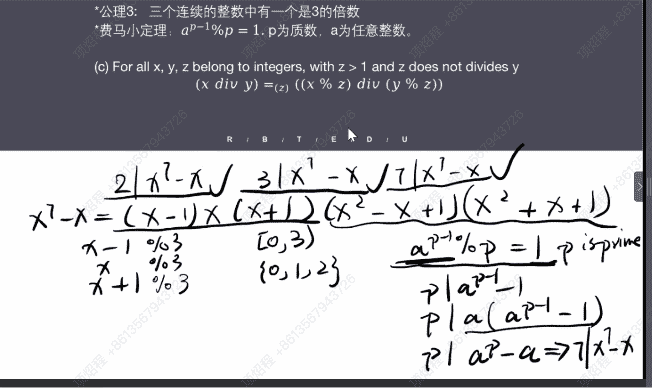 *公理3: 三个连续的整数中有一个是3的倍数
*费马小定理: a^{p-1}%p = 1. p为质数, a为任意整数。
(c) For all x, y, z belong to integers, with z > 1 and z does not divides y
(x div y) =_{(z)} ((x % z) div (y % z))
R / B / T / E / D / U
2 | x^7 - x ✓ 3 | x^7 - x ✓ 7 | x^7 - x ✓
x^7 - x = (x-1) x (x+1) (x^2 - x + 1) (x^2 + x + 1)
x - 1 % 3 [0, 3) a^{p-1} % p = 1 p is prime
x % 3 {0, 1, 2}
x + 1 % 3 p | a^{p-1} - 1
p | a(a^{p-1} - 1)
p | a^p - a => 7 | x^7 - x